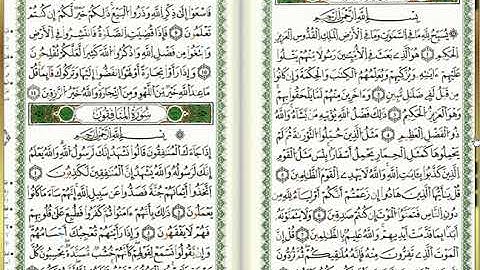 بِسْمِ اللَّهِ الرَّحْمَٰنِ الرَّحِيمِ
يُسَبِّحُ لِلَّهِ مَا فِي السَّمَٰوَٰتِ وَمَا فِي الْأَرْضِ الْمَلِكِ الْقُدُّوسِ الْعَزِيزِ
الْحَكِيمِ ١ هُوَ الَّذِي بَعَثَ فِي الْأُمِّيِّـۧنَ رَسُولًا مِّنْهُمْ يَتْلُوا
عَلَيْهِمْ ءَايَٰتِهِ وَيُزَكِّيهِمْ وَيُعَلِّمُهُمُ الْكِتَٰبَ وَالْحِكْمَةَ وَإِن كَانُوا
مِن قَبْلُ لَفِي ضَلَٰلٍ مُّبِينٍ ٢ وَءَاخَرِينَ مِنْهُمْ لَمَّا يَلْحَقُوا بِهِمْ
وَهُوَ الْعَزِيزُ الْحَكِيمُ ٣ ذَٰلِكَ فَضْلُ اللَّهِ يُؤْتِيهِ مَن يَشَاءُ وَاللَّهُ
ذُو الْفَضْلِ الْعَظِيمِ ٤ مَثَلُ الَّذِينَ حُمِّلُوا التَّوْرَىٰةَ ثُمَّ لَمْ
يَحْمِلُوهَا كَمَثَلِ الْحِمَارِ يَحْمِلُ أَسْفَارًا بِئْسَ مَثَلُ الْقَوْمِ
الَّذِينَ كَذَّبُوا بِـَٔايَٰتِ اللَّهِ وَاللَّهُ لَا يَهْدِي الْقَوْمَ الظَّٰلِمِينَ ٥
قُلْ يَٰأَيُّهَا الَّذِينَ هَادُوا إِن زَعَمْتُمْ أَنَّكُمْ أَوْلِيَاءُ لِلَّهِ مِن
دُونِ النَّاسِ فَتَمَنَّوُا الْمَوْتَ إِن كُنتُمْ صَٰدِقِينَ ٦ وَلَا يَتَمَنَّوْنَهُ
أَبَدًا بِمَا قَدَّمَتْ أَيْدِيهِمْ وَاللَّهُ عَلِيمٌ بِالظَّٰلِمِينَ ٧ قُلْ إِنَّ
الْمَوْتَ الَّذِي تَفِرُّونَ مِنْهُ فَإِنَّهُ مُلَٰقِيكُمْ ثُمَّ تُرَدُّونَ
فَاسْعَوْا إِلَىٰ ذِكْرِ اللَّهِ وَذَرُوا الْبَيْعَ ذَٰلِكُمْ خَيْرٌ لَّكُمْ إِن كُنتُمْ
تَعْلَمُونَ ٩ فَإِذَا قُضِيَتِ الصَّلَوٰةُ فَانتَشِرُوا فِي الْأَرْضِ
وَابْتَغُوا مِن فَضْلِ اللَّهِ وَاذْكُرُوا اللَّهَ كَثِيرًا لَّعَلَّكُمْ تُفْلِحُونَ
١٠ وَإِذَا رَأَوْا تِجَٰرَةً أَوْ لَهْوًا انفَضُّوا إِلَيْهَا وَتَرَكُوكَ قَائِمًا قُلْ
مَا عِندَ اللَّهِ خَيْرٌ مِّنَ اللَّهْوِ وَمِنَ التِّجَٰرَةِ وَاللَّهُ خَيْرُ الرَّٰزِقِينَ ١١
سُورَةُ الْمُنَافِقُونَ
بِسْمِ اللَّهِ الرَّحْمَٰنِ الرَّحِيمِ
إِذَا جَاءَكَ الْمُنَٰفِقُونَ قَالُوا نَشْهَدُ إِنَّكَ لَرَسُولُ اللَّهِ وَاللَّهُ يَعْلَمُ
إِنَّكَ لَرَسُولُهُ وَاللَّهُ يَشْهَدُ إِنَّ الْمُنَٰفِقِينَ لَكَٰذِبُونَ ١
اتَّخَذُوا أَيْمَٰنَهُمْ جُنَّةً فَصَدُّوا عَن سَبِيلِ اللَّهِ إِنَّهُمْ سَاءَ مَا كَانُوا
يَعْمَلُونَ ٢ ذَٰلِكَ بِأَنَّهُمْ ءَامَنُوا ثُمَّ كَفَرُوا فَطُبِعَ عَلَىٰ قُلُوبِهِمْ
فَهُمْ لَا يَفْقَهُونَ ٣ وَإِذَا رَأَيْتَهُمْ تُعْجِبُكَ أَجْسَامُهُمْ
وَإِن يَقُولُوا تَسْمَعْ لِقَوْلِهِمْ كَأَنَّهُمْ خُشُبٌ مُّسَنَّدَةٌ يَحْسَبُونَ كُلَّ